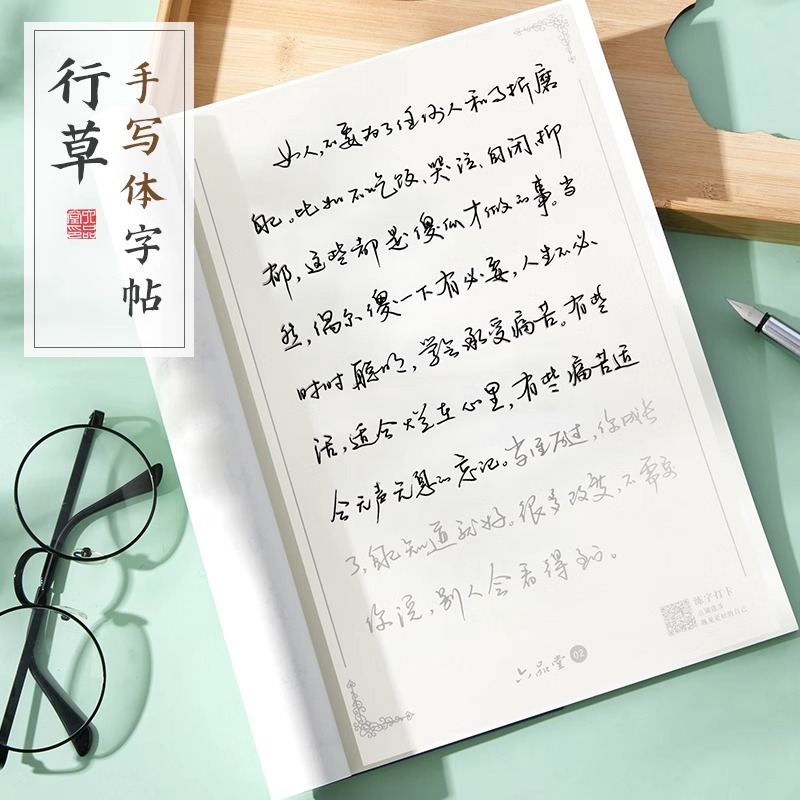 行草
手写体字帖
女人,不要为了任何人和事折磨
自己。比如不吃饭、哭泣、自闭、抑
郁,这些都是傻瓜才做的事。当
然,偶尔傻一下有必要,人生不必
时时聪明,学会承受痛苦。有些
话,适合烂在心里,有些痛苦适
合无声无息的忘记。当经历过,你成长
了,自己知道就好。很多改变,不需要
你说,别人会看得到。
练字打卡
点滴进步
遇见更好的自己
六品堂 02